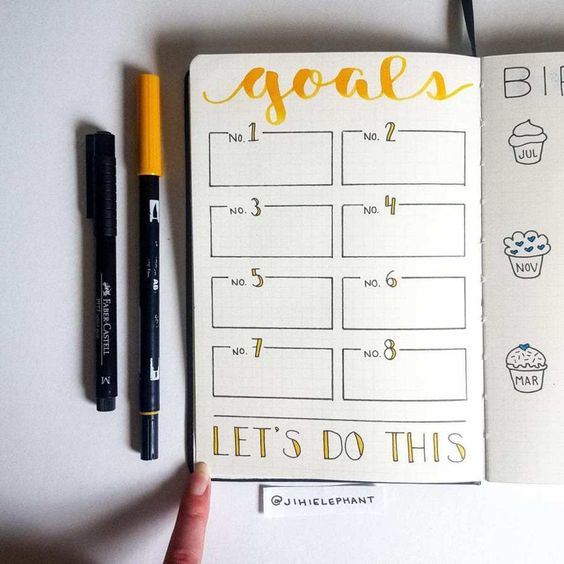 goals
NO. 1
NO. 2
NO. 3
NO. 4
NO. 5
NO. 6
NO. 7
NO. 8
LET'S DO THIS
@JIHIELEPHANT
JUL
NOV
MAR
FABER-CASTELL
M